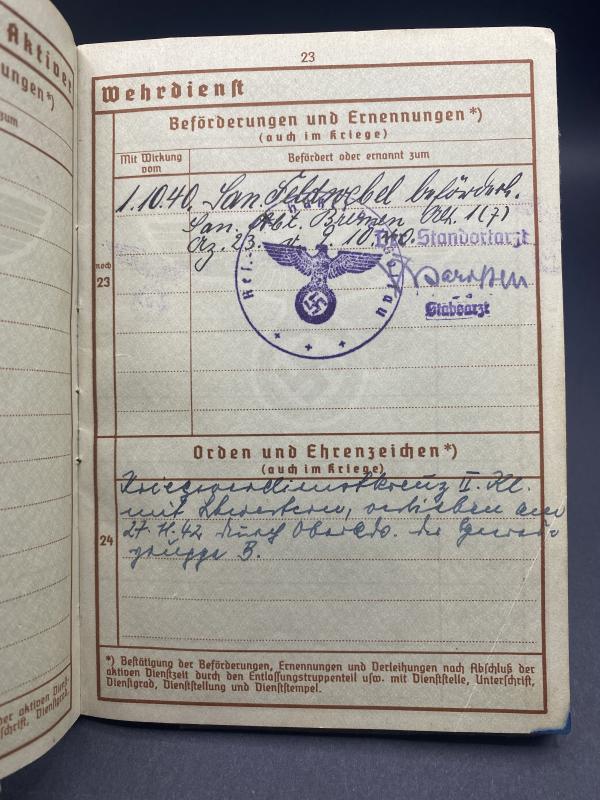 Aktiver
ungen*)
zum
23
Wehrdienst
Beförderungen und Ernennungen*)
(auch im Kriege)
Mit Wirkung
vom
Befördert oder ernannt zum
1.10.40. San. Feldwebel befördert.
San. Bremen 1(7)
23. v. 9.10.40.
Der Standortarzt
Stabsarzt
noch
23
Orden und Ehrenzeichen*)
(auch im Kriege)
Kriegsverdienstkreuz II. Kl.
mit Schwertern, verliehen am
42 durch Oberkdo. der
gruppe B.
24
*) Bestätigung der Beförderungen, Ernennungen und Verleihungen nach Abschluß der
aktiven Dienstzeit durch den Entlassungstruppenteil usw. mit Dienststelle, Unterschrift,
Dienstgrad, Dienststellung und Dienststempel.
der aktiven